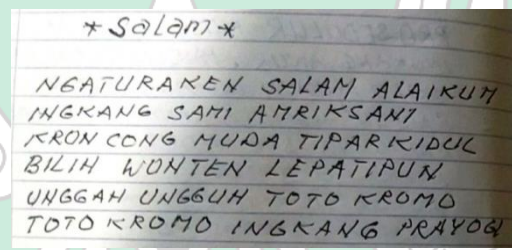 * Salam *
NGATURAKEN SALAM ALAIKUM
INGKANG SAMI AMRIKSANI
KRON CONG MUDA TIPAR KIDUL
BILIH WONTEN LEPATIPUN
UNGGAH UNGGUH TOTO KROMO
TOTO KROMO INGKANG PRAYOG